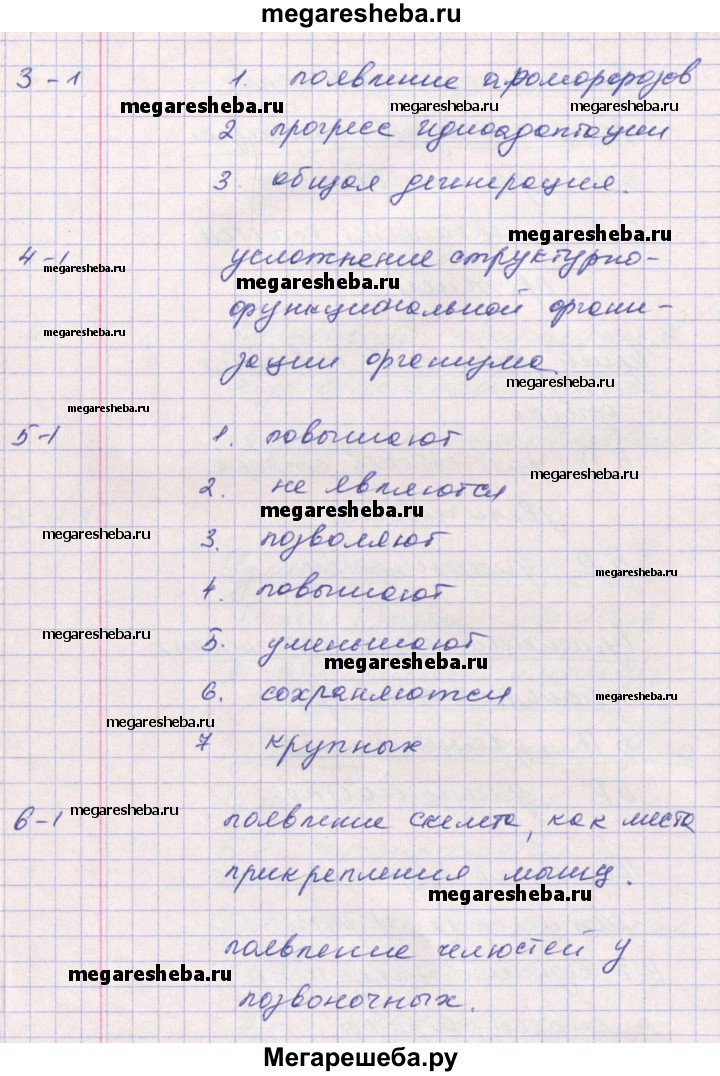 megaresheba.ru
3-1 1. появление ароморфозов
megaresheba.ru megaresheba.ru megaresheba.ru
2 прогресс идиоадаптации
3. общая дегинерация.
megaresheba.ru
4-1 усложнение структурно-
megaresheba.ru megaresheba.ru
функциональной органи-
megaresheba.ru
зации организма.
megaresheba.ru
megaresheba.ru
5-1 1. повышают
megaresheba.ru
2. не являются
megaresheba.ru
megaresheba.ru
3. позволяют
megaresheba.ru
4. повышают
megaresheba.ru
5. уменьшают
megaresheba.ru
6. сохраняются
megaresheba.ru
megaresheba.ru
7 крупных
megaresheba.ru
6-1 появление скелета, как места
прикрепления мышц.
megaresheba.ru
появление челюстей у
megaresheba.ru
позвоночных.
Мегарешеба.ру